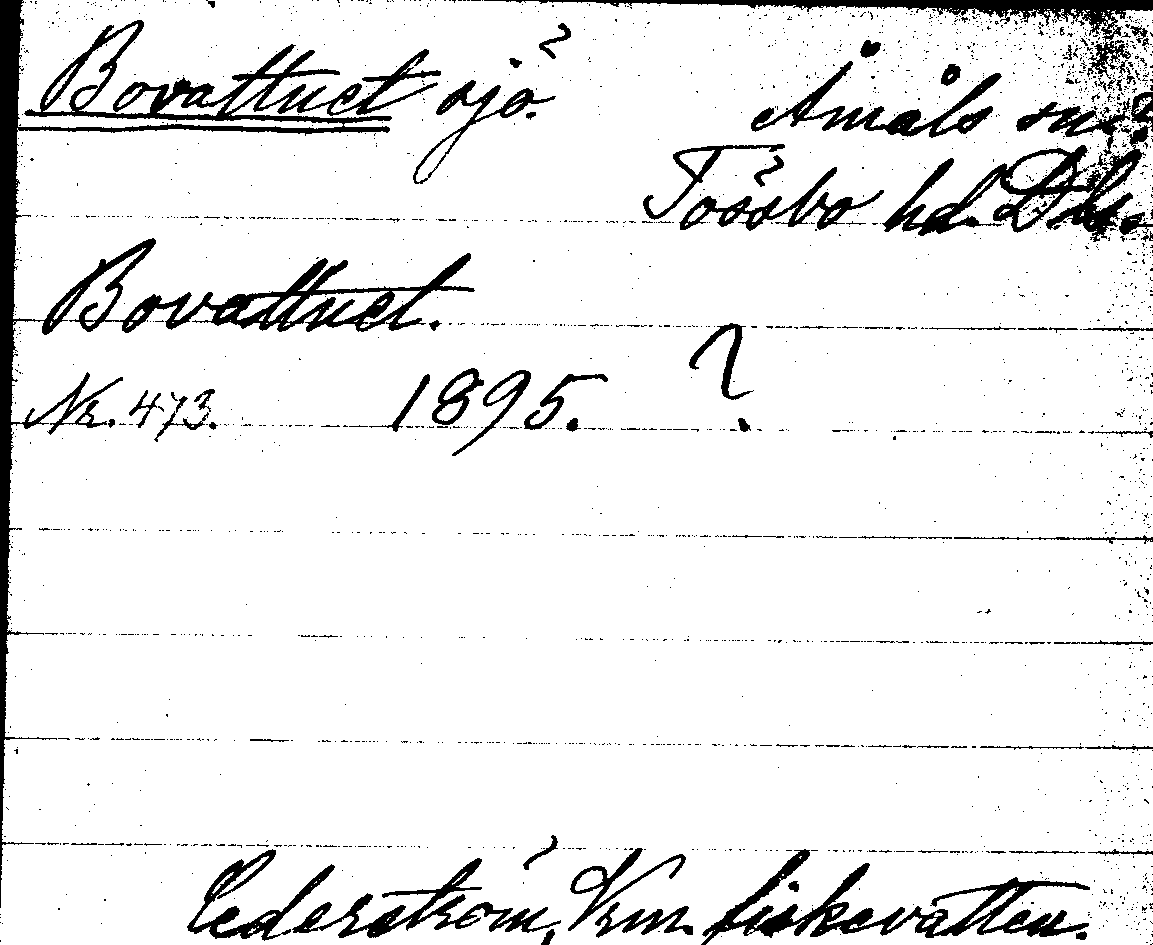 Bovattnet sjö.
Åmåls sn?
Tössbo hd. Dls.
Bovattnet.
Nr. 473. 1895. ?
Cederström, Vrm. fiskevatten.